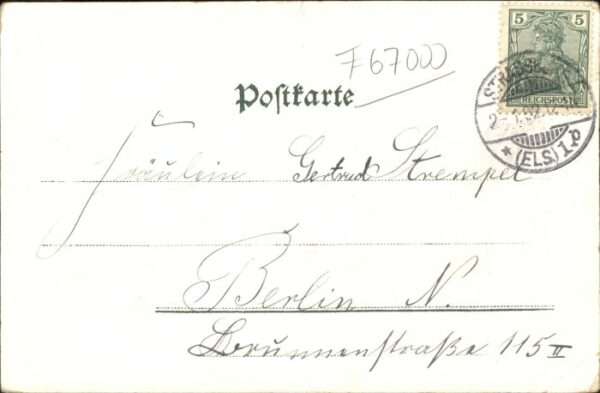 5 5
REICHSPOST
F 67000
Postkarte
(ELS.) 1.p
Fräulein Gertrud Strempel
Berlin N.
Brunnenstraße 115 II